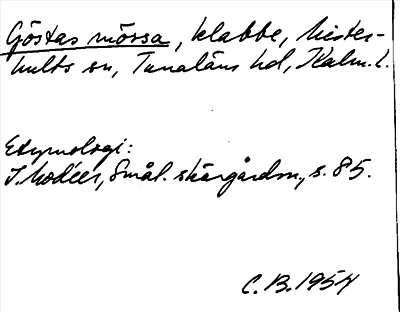 Göstas mössa, klabbe, Mister-
hults sn, Tunaläns hd, Kalm. l.
Etymologi:
I. Modéer, Smål. skärgårdsn., s. 85.
C. B. 1954